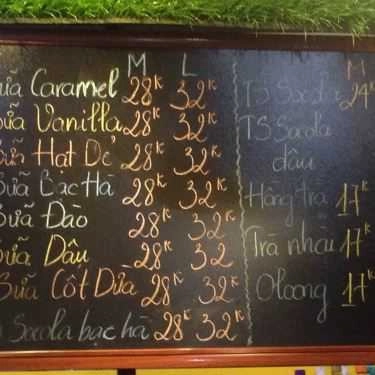 M L
ữa Caramel 28K 32K
Sữa Vanilla 28K 32K
Sữa Hạt Dẻ 28K 32K
Sữa Bạc Hà 28K 32K
Sữa Đào 28K 32K
Sữa Dâu 28K 32
Sữa Cốt Dừa 28K 32K
Socola bạc hà 28K 32K
M
TS Socola 24K
TS Socola
dâu
Hồng trà 17K
Trà nhài 17K
Oloong 17K